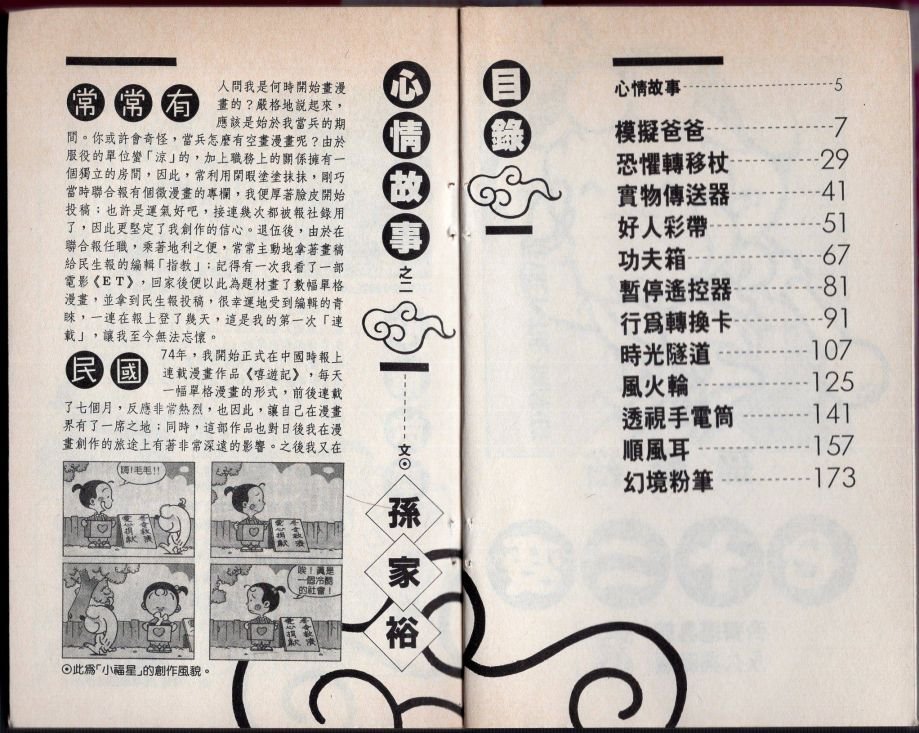 心情故事之二
文⊙孫家裕
常常有人問我是何時開始畫漫
畫的？嚴格地說起來，
應該是始於我當兵的期
間。你或許會奇怪，當兵怎麼有空畫漫畫呢？由於
服役的單位蠻「涼」的，加上職務上的關係擁有一
個獨立的房間，因此，常利用閑暇塗塗抹抹，剛巧
當時聯合報有個徵漫畫的專欄，我便厚著臉皮開始
投稿；也許是運氣好吧，接連幾次都被報社錄用
了，因此更堅定了我創作的信心。退伍後，由於在
聯合報任職，乘著地利之便，常常主動地拿著畫稿
給民生報的編輯「指教」；記得有一次我看了一部
電影《ET》，回家後便以此為題材畫了數幅單格
漫畫，並拿到民生報投稿，很幸運地受到編輯的青
睞，一連在報上登了幾天，這是我的第一次「連
載」，讓我至今無法忘懷。
民國74年，我開始正式在中國時報上
連載漫畫作品《嘻遊記》，每天
一幅單格漫畫的形式，前後連載
了七個月，反應非常熱烈，也因此，讓自己在漫畫
界有了一席之地；同時，這部作品也對日後我在漫
畫創作的旅途上有著非常深遠的影響。之後我又在
嗨！毛毛！！
冬令救濟
愛心捐獻
冬令救濟
愛心捐獻
唉！真是
一個冷酷
的社會！
冬令救濟
愛心捐獻
⊙此為「小福星」的創作風貌。
目錄
心情故事 5
模擬爸爸 7
恐懼轉移杖 29
實物傳送器 41
好人彩帶 51
功夫箱 67
暫停遙控器 81
行為轉換卡 91
時光隧道 107
風火輪 125
透視手電筒 141
順風耳 157
幻境粉筆 173